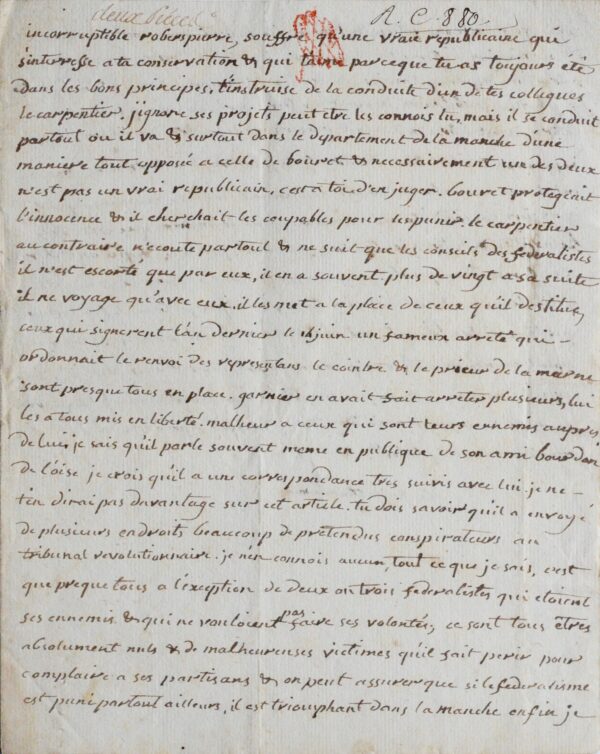 deux pièces
A. C. 880
incorruptible roberspierre, souffre qu'une vraie republicaine qui
s'interresse a ta conservation & qui t'aime parceque tu as toujours été
dans les bons principes, t'instruise de la conduite d'un de tes collegues
le carpentier. j'ignore ses projets peut etre les connois tu, mais il se conduit
partout ou il va & surtout dans le departement de la manche d'une
maniere tout opposée a celle de bouret & necessairement un des deux
n'est pas un vrai republicain, c'est a toi d'en juger. bouret protegeait
l'innocence & il cherchait les coupables pour les punir. le carpentier
au contraire n'ecoute partout & ne suit que les conseils des federalistes
il n'est escorté que par eux, il en a souvent plus de vingt a sa suite
il ne voyage qu'avec eux. il les met a la place de ceux qu'il destitue,
ceux qui signerent l'an dernier le juin un fameux arreté qui
ordonnait le renvoi des represéntans le cointre & le prieur de la marne
sont presque tous en place. garnier en avait fait arrèter plusieurs, lui
les a tous mis en liberté. malheur a ceux qui sont leurs ennemis aupres
de lui, je sais qu'il parle souvent meme en publique de son ami bourdon
de l'oise je crois qu'il a une correspondance tres suivis avec lui je ne
t'en dirai pas davantage sur cet article. tu dois savoir qu'il a envoyé
de plusieurs endroits beaucoup de prétendus conspirateurs au
tribunal revolutionnaire. je n'en connois aucun, tout ce que je sais, c'est
que preque tous a l'éxception de deux ou trois federalistes qui etoient
ses ennemis & qui ne vouloient pas faire ses volontés, ce sont tous êtres
absolument nuls & de malheureuses victimes qu'il fait perir pour
complaire a ses partisans & on peut assurer que si le federalisme
est puni partout ailleurs, il est triomphant dans la manche enfin je